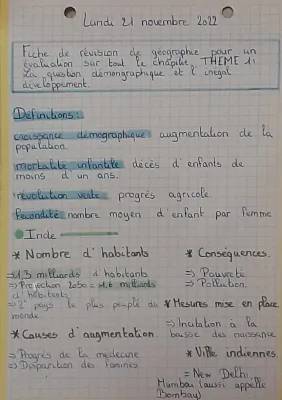 Lundi 21 novembre 2022
Fiche de révision de géographie pour un
évaluation sur tout le chapitre, THEME 1:
La question démongraphique et l'inégal
développement.
Définitions:
croissance démographique augmentation de la
population.
mortalité infantile décés d'enfants de
moins d'un ans.
révolution verte progrès agricole.
Fécondité nombre moyen d'enfant par femme
Inde
* Nombre d'habitants
⇒ 1,3 milliards d'habitants
⇒ Projection 2050 = 1.6 milliards
d'habitants
⇒ 2e pays le plus peuplé du
monde.
* Causes d'augmentation.
⇒ Progrès de la medecine
⇒ Disparition des famines
* Conséquences.
⇒ Pauvreté
⇒ Pollution.
* Mesures mise en place
⇒ Incitation à la
baisse des naissance
* Ville indiennes.
= New Delhi
Mumbai (aussi appelle
Bombay)